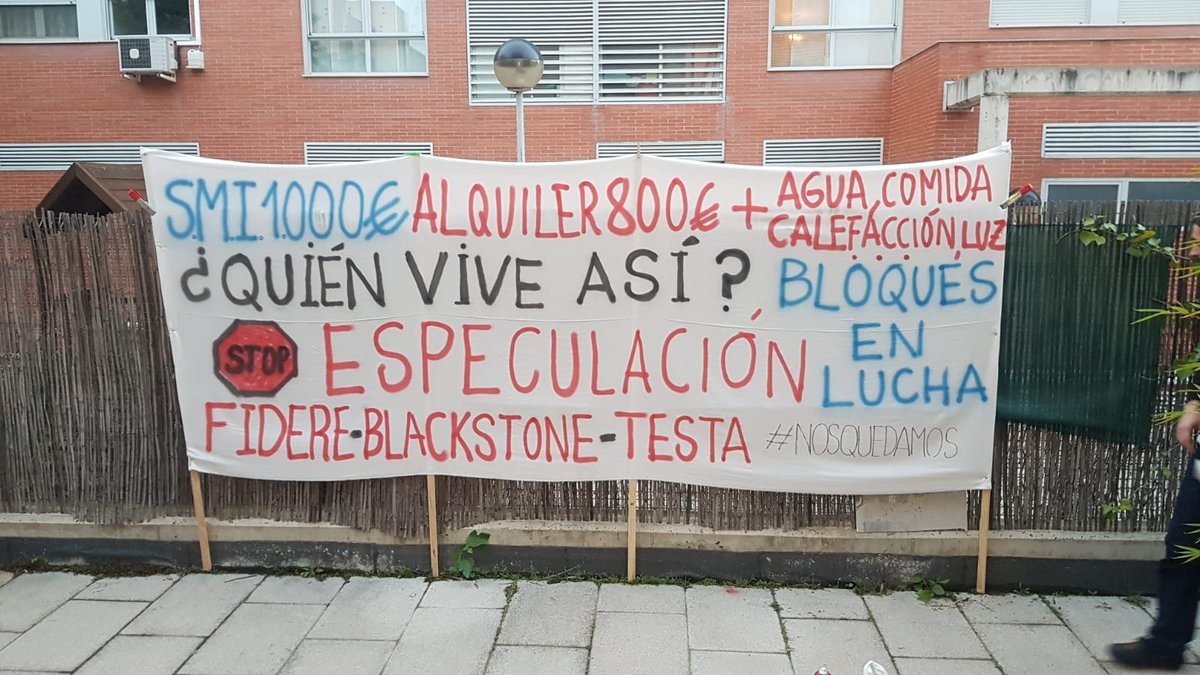 S.M.I. 1.000€ ALQUILER 800€ + AGUA, COMIDA
CALEFACCIÓN, LUZ...
¿QUIÉN VIVE ASÍ?
STOP ESPECULACIÓN
FIDERE-BLACKSTONE-TESTA
BLOQUES
EN
LUCHA
#NOSQUEDAMOS